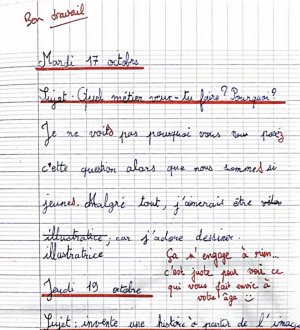 Bon travail
Mardi 17 octobre
Sujet : Quel métier veux-tu faire ? Pourquoi ?
Je ne voits pas pourquoi vous posez
c'ette question alors que nous sommes si
jeunes. Malgré tout, j'aimerais être
illustratice, car j'adore dessiner.
illustratrice
Ça n'engage à rien...
c'est juste pour voir ce
qui vous fait envie à
votre âge :)
Jeudi 19 octobre
Sujet : invente une histoire à partir de l'image